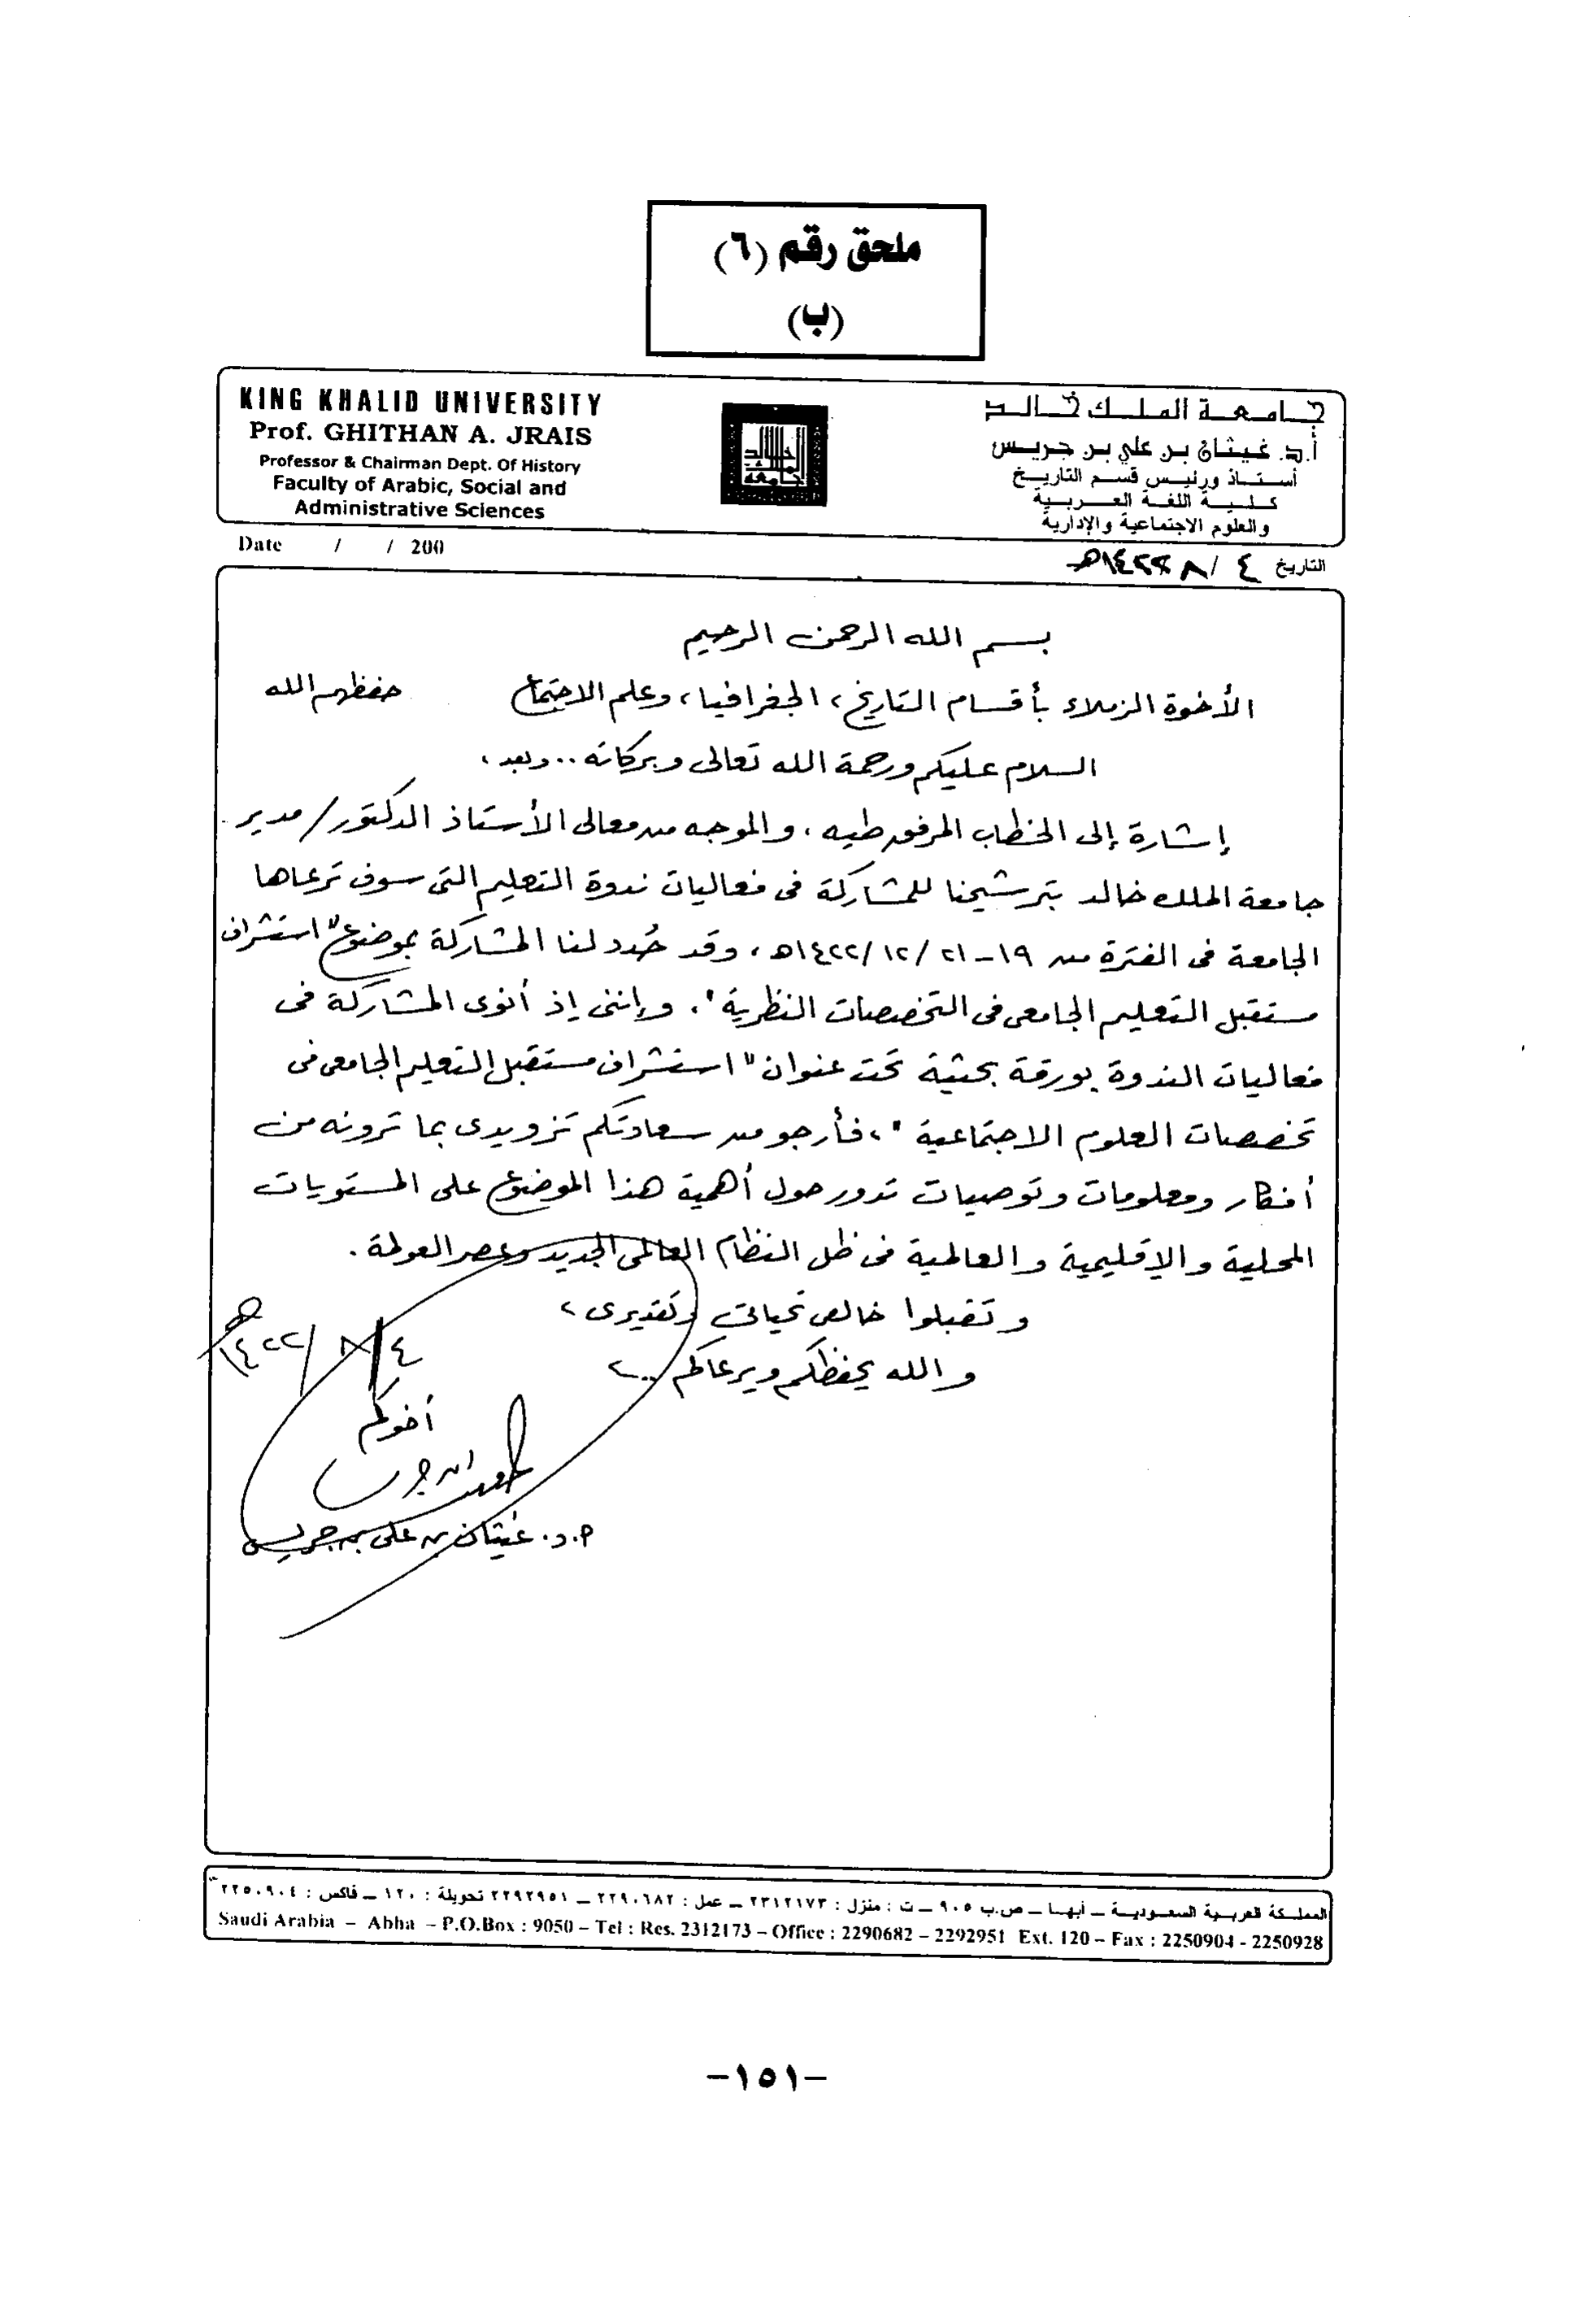 ملحق رقم (٦)
(ب)
KING KHALID UNIVERSITY
Prof. GHITHAN A. JRAIS
Professor & Chairman Dept. Of History
Faculty of Arabic, Social and
Administrative Sciences
جامعة الملك خالد
أ.د. غيثان بن علي بن جريس
أستاذ ورئيس قسم التاريخ
كلية اللغة العربية
والعلوم الاجتماعية والإدارية
Date / / 200
التاريخ ٤ / ٨ ١٤٢٢هـ
بسم الله الرحمن الرحيم
الأخوة الزملاء بأقسام التاريخ، الجغرافيا، وعلم الاجتماع حفظهم الله
السلام عليكم ورحمة الله تعالى وبركاته .. وبعد ،
إشارة إلى الخطاب المرفق طيه ، والموجه من معالى الأستاذ الدكتور/ مدير
جامعة الملك خالد بترشيحنا للمشاركة فى فعاليات ندوة التعليم التى سوف ترعاها
الجامعة فى الفترة من ١٩-٢١ /١٤٢٢/١٢هـ ، وقد حُدد لنا المشاركة بموضوع "استشراف
مستقبل التعليم الجامعى فى التخصصات النظرية" . وإننى إذ أنوى المشاركة فى
فعاليات الندوة بورقة بحثية تحت عنوان "استشراف مستقبل التعليم الجامعى فى
تخصصات العلوم الاجتماعية" ، فأرجو من سعادتكم تزويدى بما ترونه من
أفكار ومعلومات وتوصيات تدور حول أهمية هذا الموضوع على المستويات
المحلية والإقليمية والعالمية فى ظل النظام العالمى الجديد وعصر العولمة .
وتقبلوا خالص تحياتى وتقديرى ،
والله يحفظكم ويرعاكم ..،
٤/ ٨ /١٤٢٢هـ
أخوكم
أ.د. غيثان بن على بن جريس
المملكة العربية السعودية – أبها – ص.ب ٩٠٥ – ت : منزل : ٢٣١٢١٧٣ – عمل : ٢٢٩٠٦٨٢ – ٢٢٩٢٩٥١ تحويلة : ١٢٠ – فاكس : ٢٢٥٠٩٠٤
Saudi Arabia – Abha – P.O.Box : 9050 – Tel : Res. 2312173 – Office : 2290682 – 2292951 Ext. 120 – Fax : 2250904 - 2250928
-١٥١-